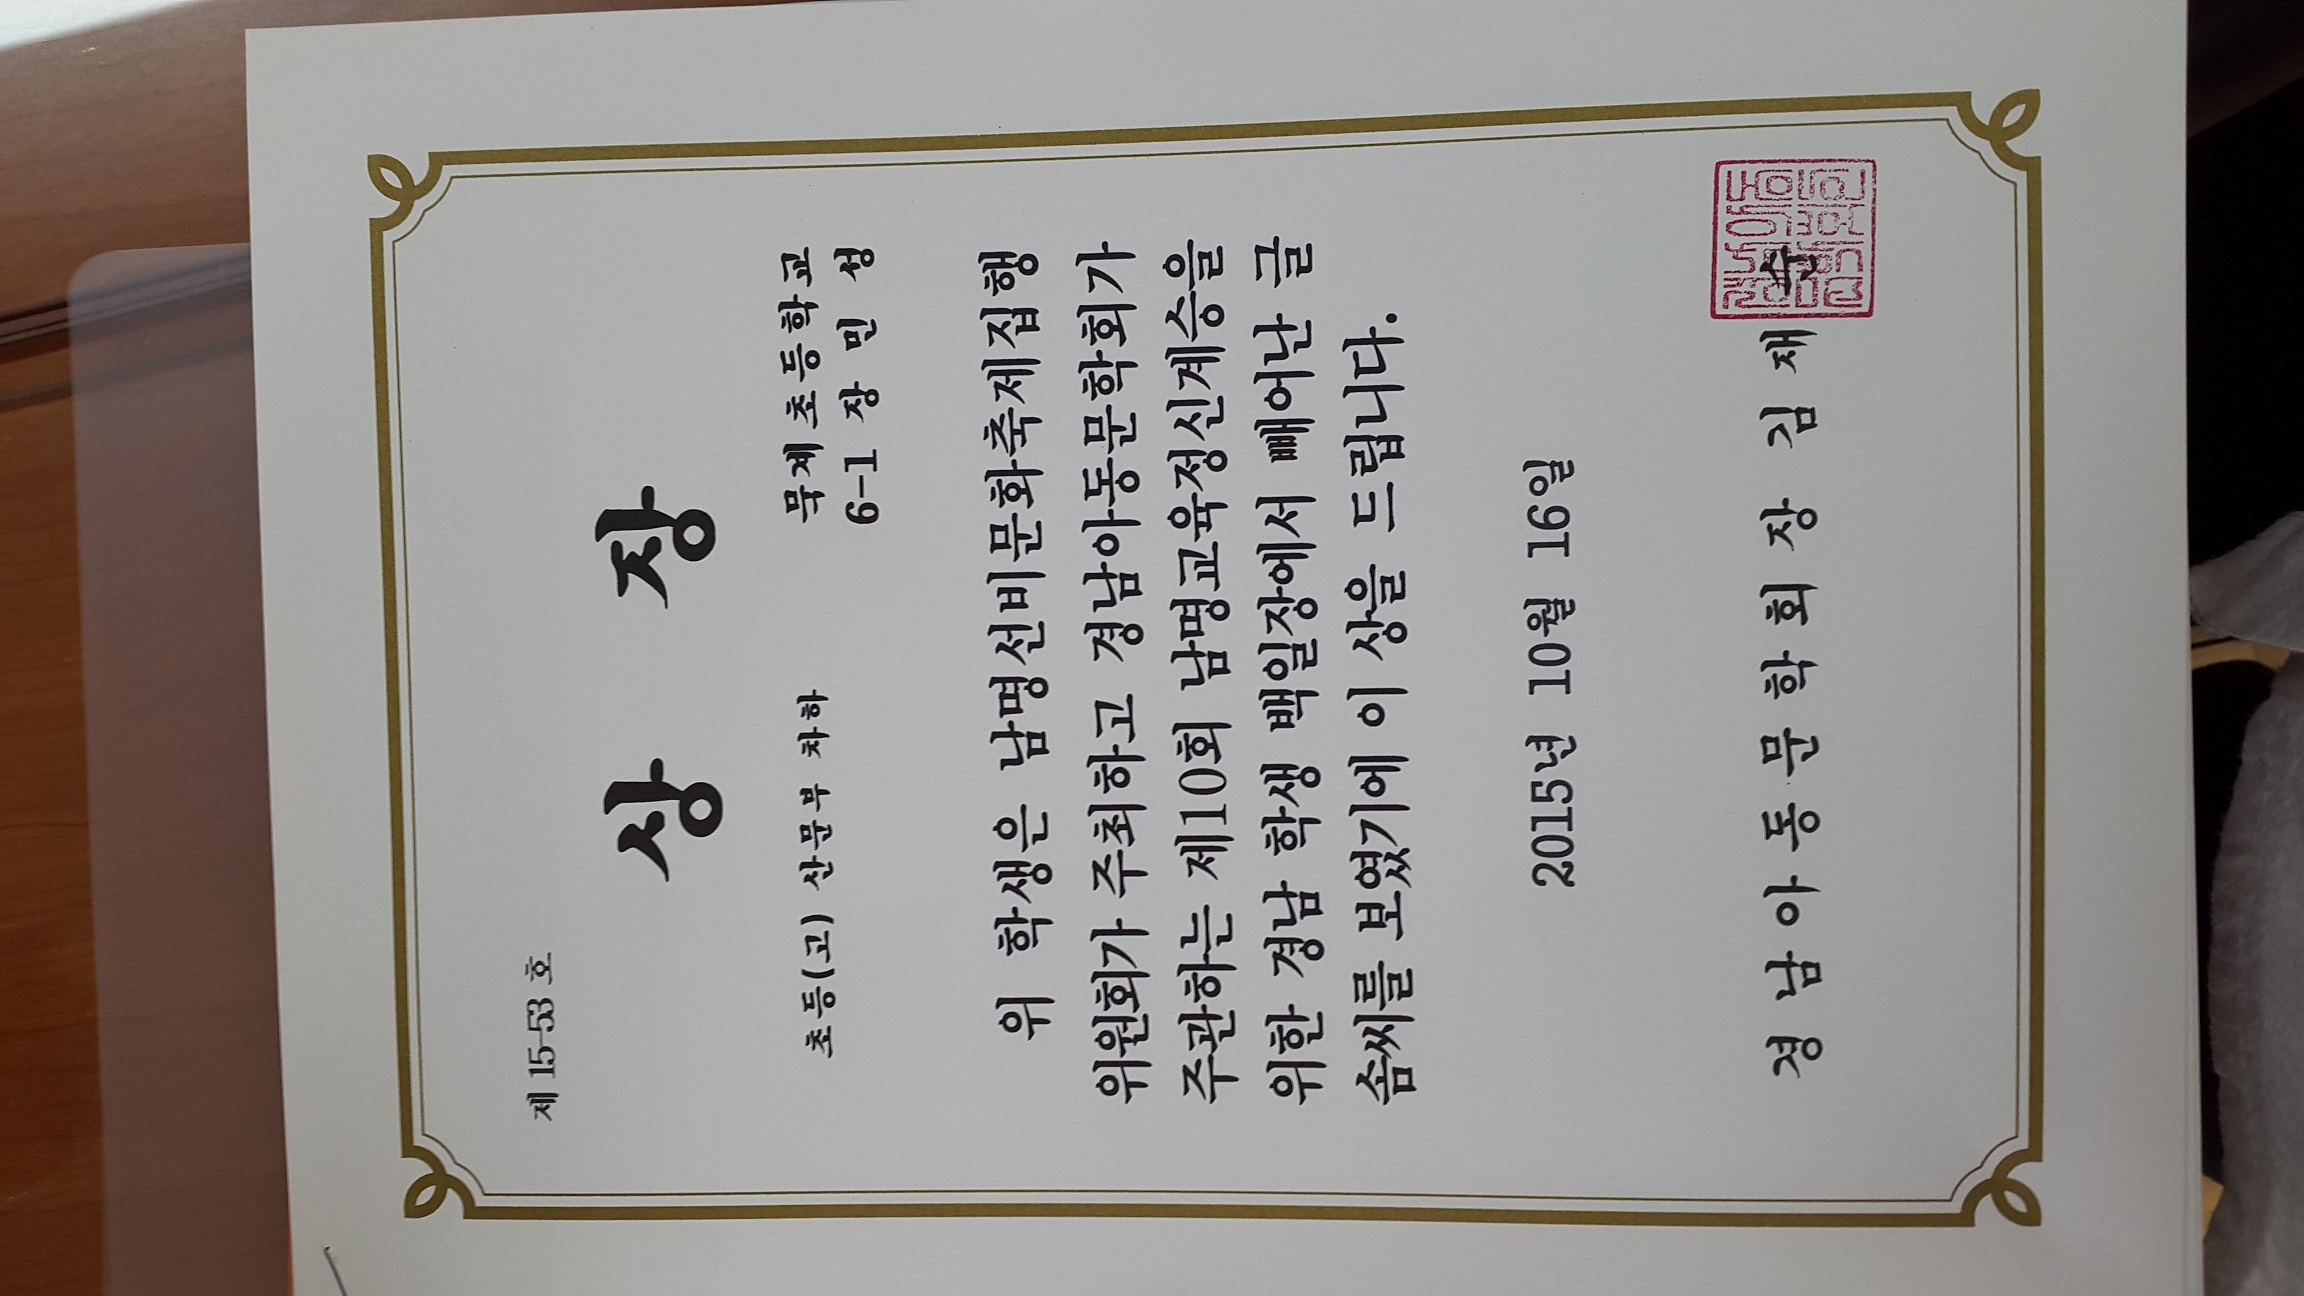 제 15-53 호
상 장
초등(고) 산문부 차하
묵계초등학교
6-1 장 민 성
위 학생은 남명선비문화축제집행
위원회가 주최하고 경남아동문학회가
주관하는 제10회 남명교육정신계승을
위한 경남 학생 백일장에서 빼어난 글
솜씨를 보였기에 이 상을 드립니다.
2015년 10월 16일
경남아동문학회장 김 재 순